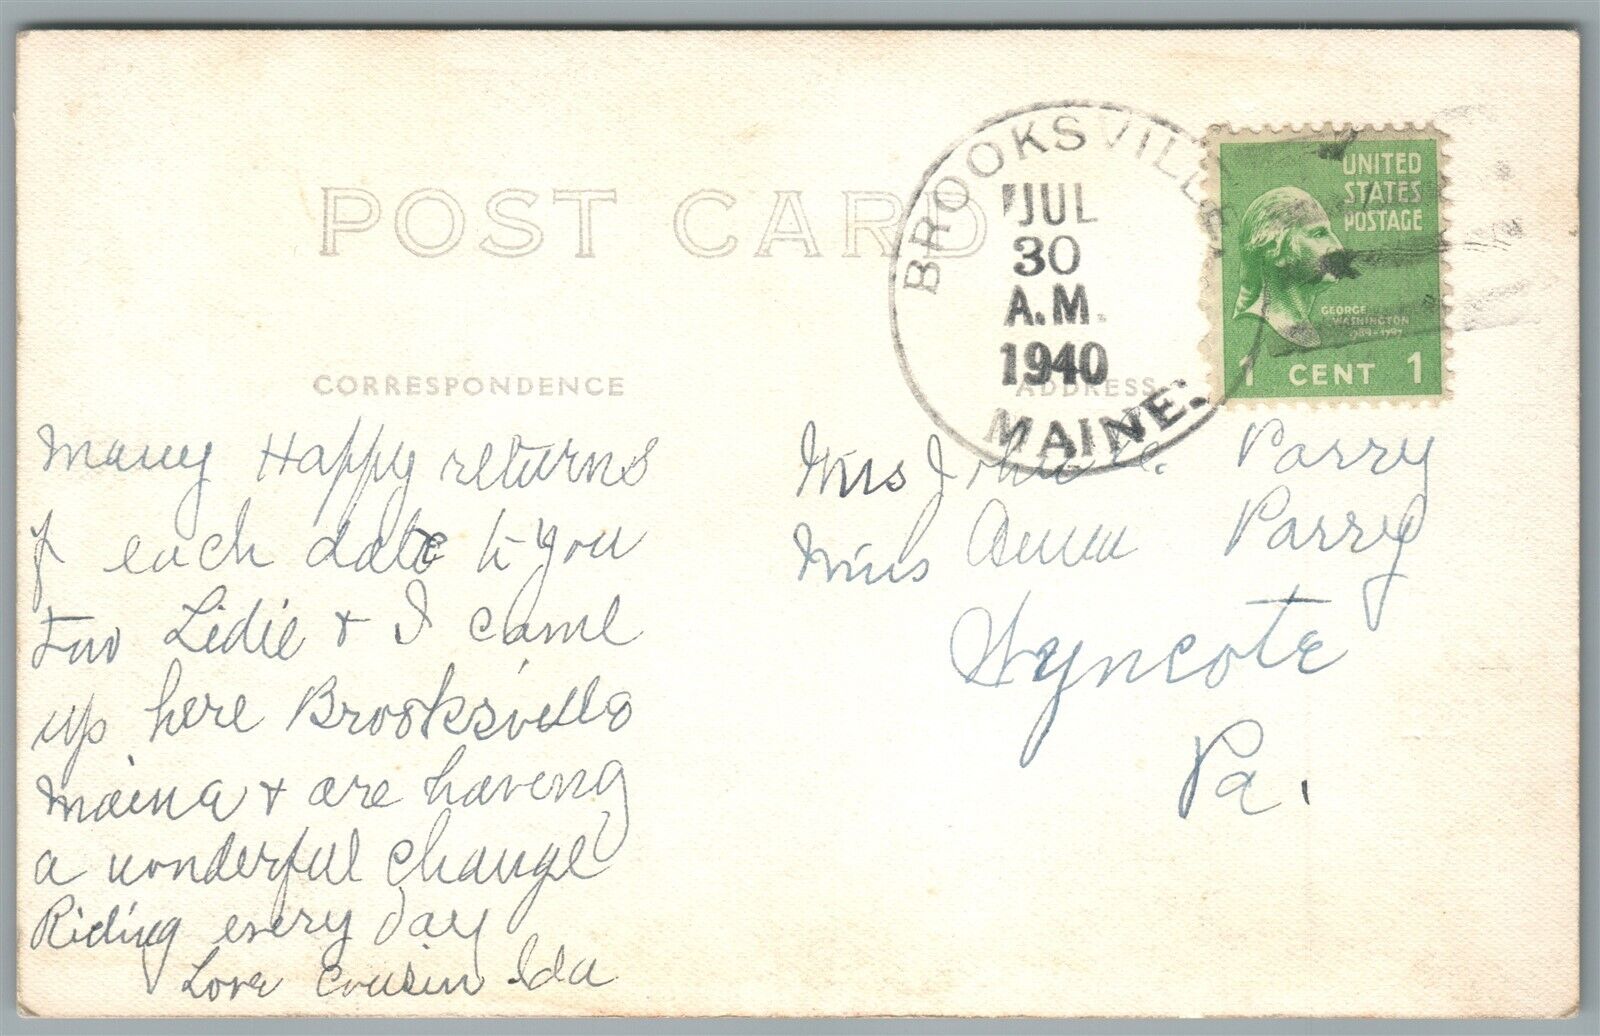 POST CARD
BROOKSVILLE
JUL
30
A.M.
1940
MAINE.
UNITED
STATES
POSTAGE
GEORGE
WASHINGTON
1789-1797
1 CENT 1
CORRESPONDENCE
ADDRESS
Many Happy returns
of each date to you
two Lidie & I came
up here Brooksville
Maine & are having
a wonderful change
Riding every day
Love Cousin Ida
Mrs Parry
Miss Anna Parry
Wyncote
Pa.